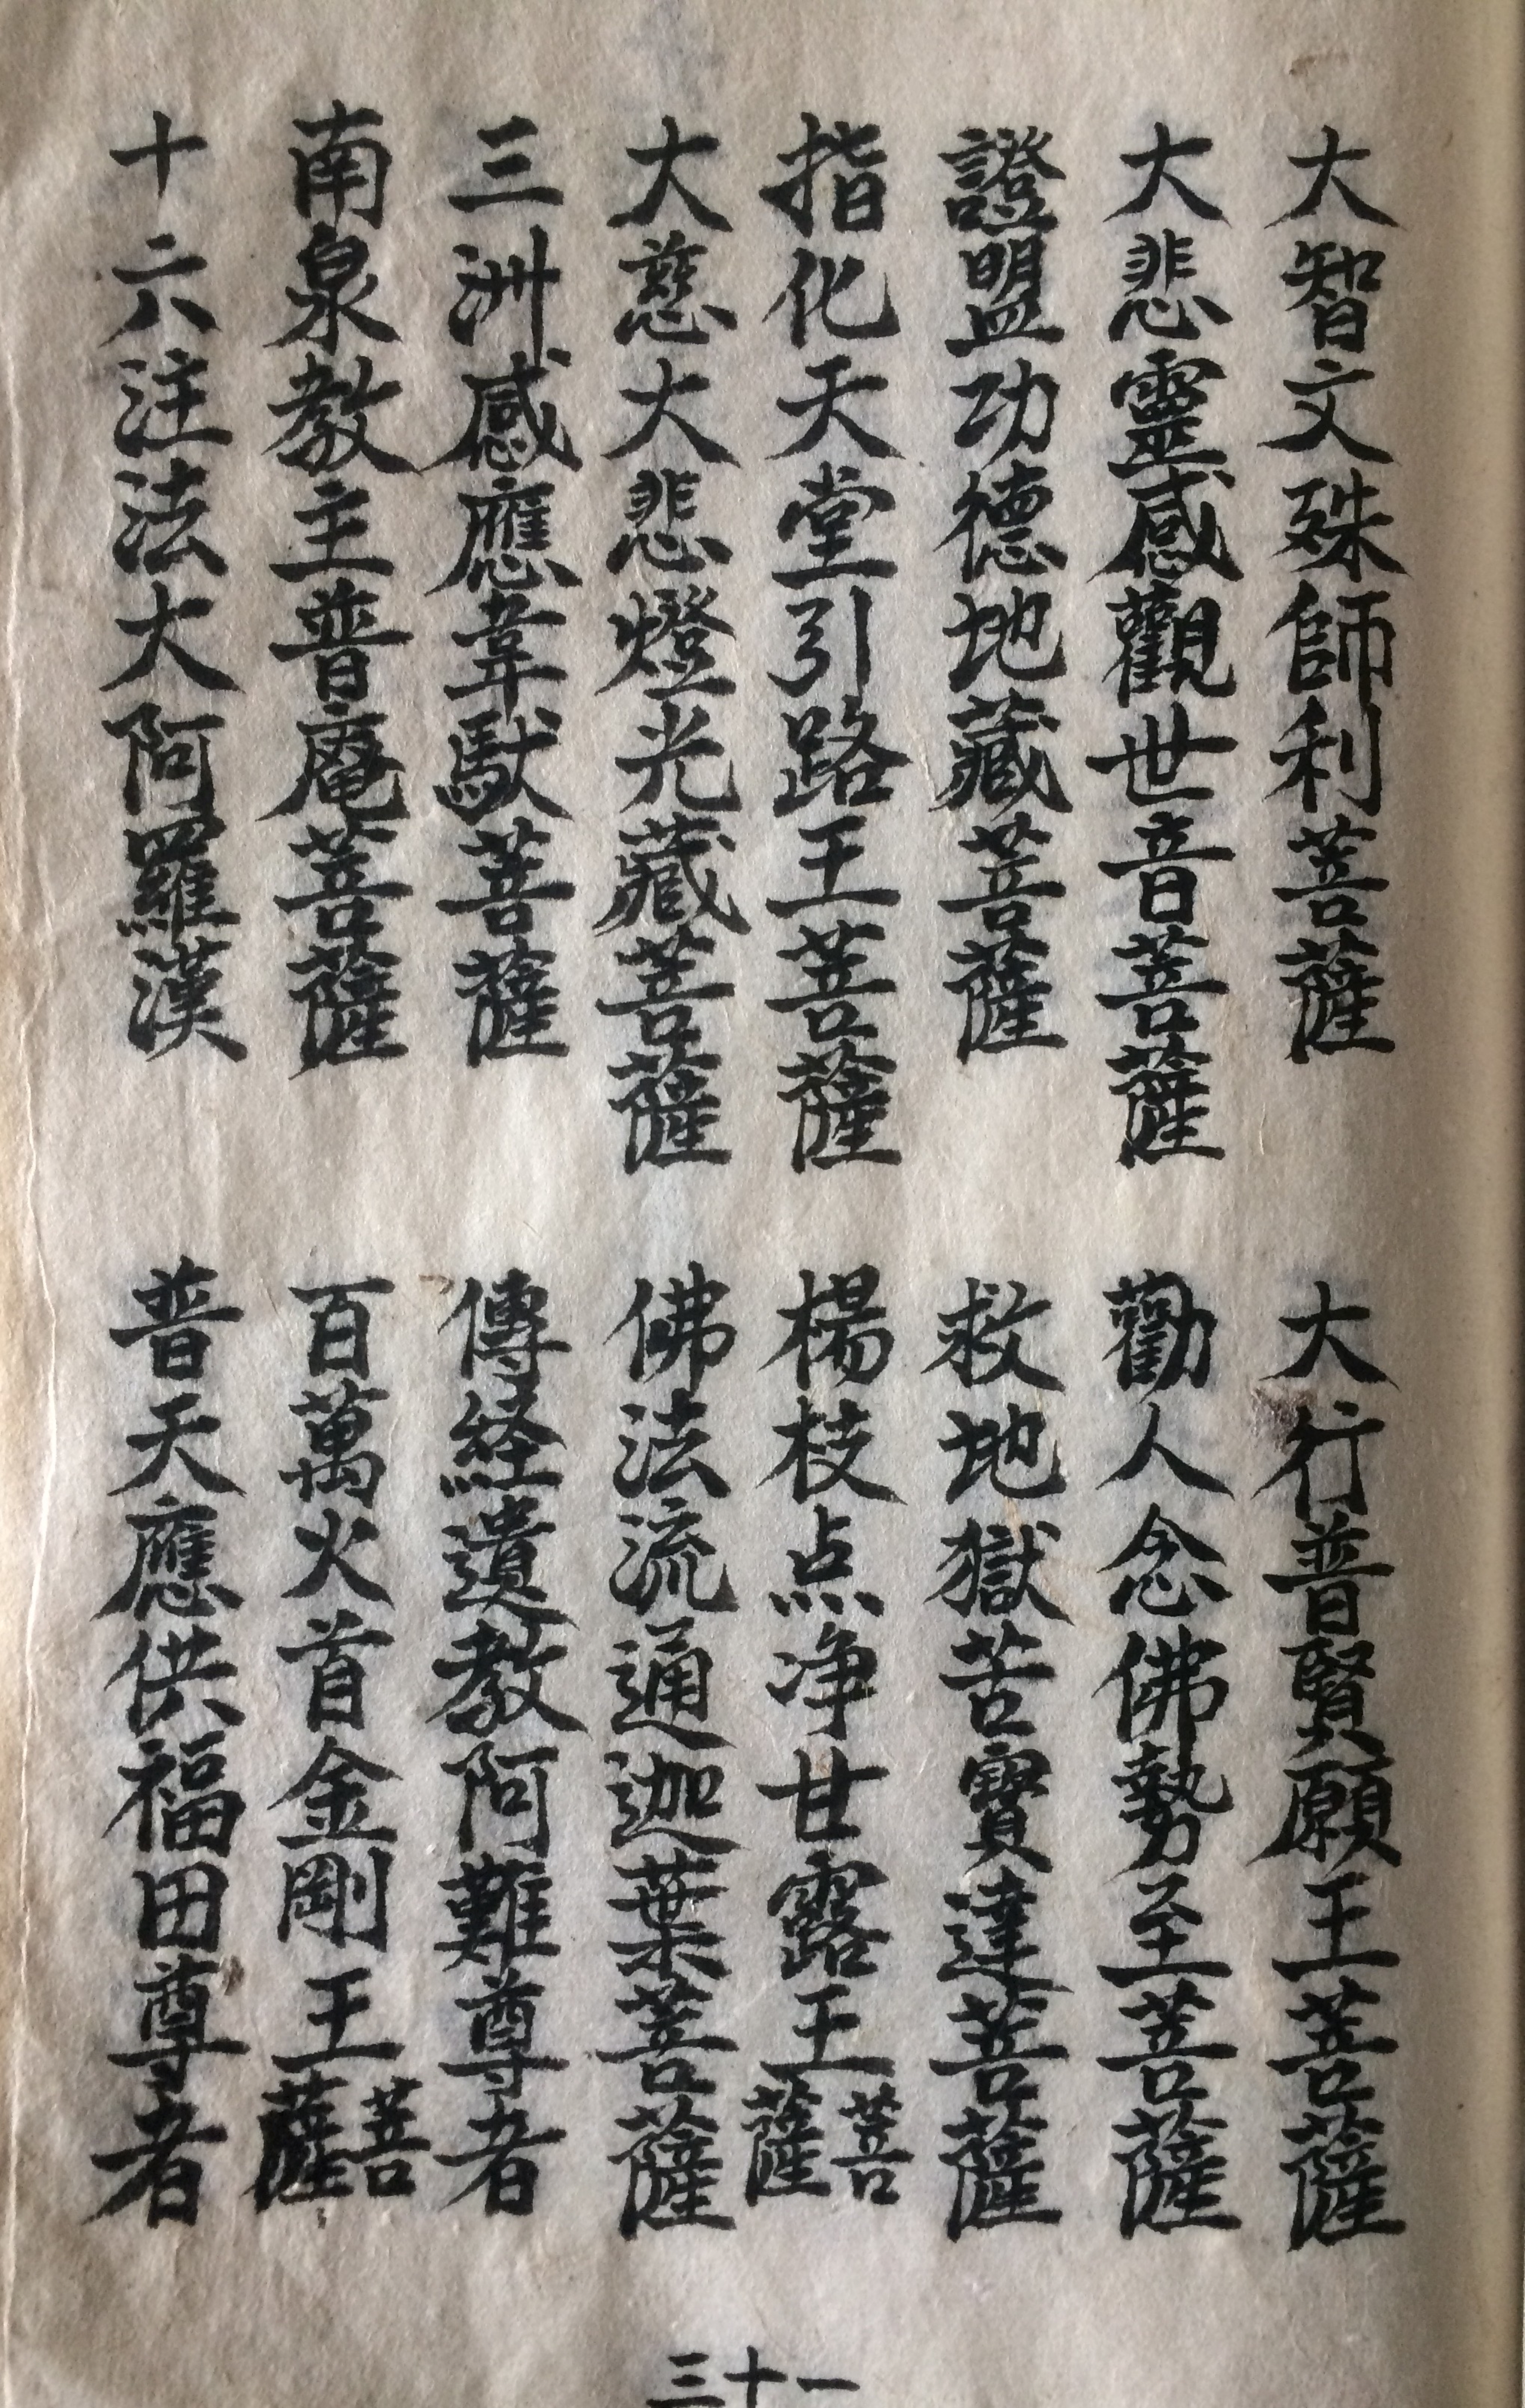 大智文殊師利菩薩　大行普賢願王菩薩
大悲靈感觀世音菩薩　勸人念佛勢至菩薩
證盟功德地藏菩薩　救地獄苦寶達菩薩
指化天堂引路王菩薩　楊枝点净甘露王菩薩
大慈大悲燈光藏菩薩　佛法流通迦葉菩薩
三洲感應韋馱菩薩　傳経遺教阿難尊者
南泉教主普庵菩薩　百萬火首金剛王菩薩
十六注法大阿羅漢　普天應供福田尊者
三十一